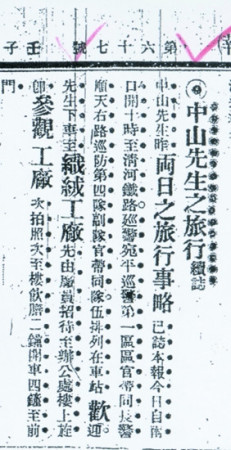 第六十七號 壬子
◎中山先生之旅行續誌
中山先生昨兩日之旅行事略已誌本報今日自南
口開十時至清河鐵路巡警宛平巡警第一區區官帶同長警
順天右路巡防第四隊副隊官帶同隊伍排列在車站歡迎
先生下車至織絨工廠先由廠員招待至辦公處樓上旋
卽參觀工廠次拍照次至樓飲膳二鐘開車四鐘至前
門